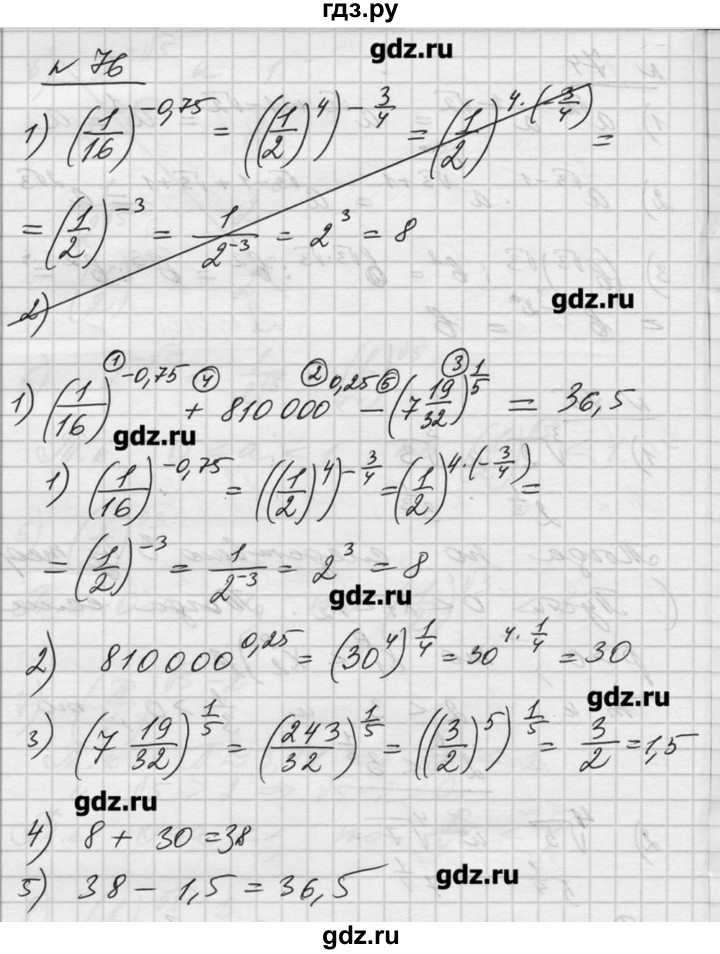 гдз.ру
gdz.ru
№ 76
1) (1/16)^(-0,75) = ((1/2)^4)^(-3/4) = (1/2)^(4·(-3/4)) =
= (1/2)^(-3) = 1/2^(-3) = 2^3 = 8
gdz.ru
2)
① ④ ② ⑤ ③
1) (1/16)^(-0,75) + 810 000^(0,25) - (7 19/32)^(1/5) = 36,5
gdz.ru
1) (1/16)^(-0,75) = ((1/2)^4)^(-3/4) = (1/2)^(4·(-3/4)) =
= (1/2)^(-3) = 1/2^(-3) = 2^3 = 8
gdz.ru
2) 810 000^(0,25) = (30^4)^(1/4) = 30^(4·1/4) = 30
gdz.ru
3) (7 19/32)^(1/5) = (243/32)^(1/5) = ((3/2)^5)^(1/5) = 3/2 = 1,5
gdz.ru
4) 8 + 30 = 38
5) 38 - 1,5 = 36,5
gdz.ru
gdz.ru